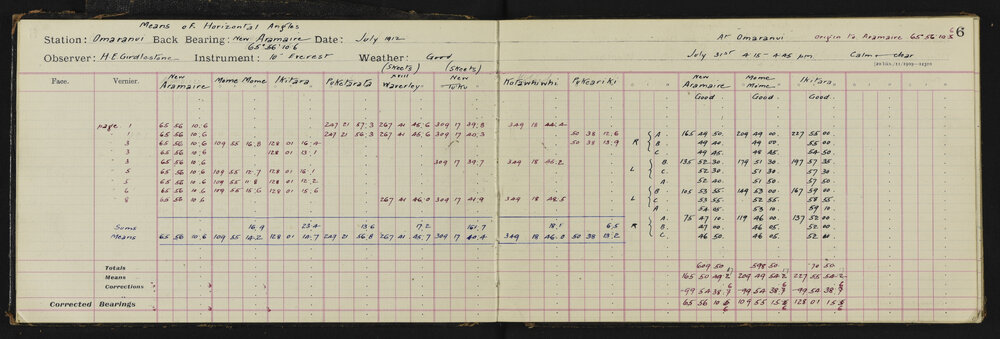 Means of Horizontal Angles
Station: Omaranui Back Bearing: New Aramaire Date: July 1912
65° 56' 10.6
Observer: H.E. Girdlestone Instrument: 10" Everest Weather: Good
(Skeets) (Skeets)
Face. Vernier. New Aramaire Mome Mome Ikitara Puketarata Mill Waverley New Tuku
page 1 65 56 10.6 247 21 57.3 267 41 45.6 309 17 39.8
1 65 56 10.6 247 21 56.3 267 41 45.6 309 17 40.3
3 65 56 10.6 109 55 16.8 128 01 16.4
3 65 56 10.6 128 01 13.1
3 65 56 10.6 309 17 39.7
5 65 56 10.6 109 55 12.7 128 01 16.1
5 65 56 10.6 109 55 11.8 128 01 12.2
6 65 56 10.6 109 55 15.6 128 01 15.6
8 65 56 10.6 267 41 46.0 309 17 41.9
Sums 16.9 23.4 13.6 17.2 161.7
Means 65 56 10.6 109 55 14.2 128 01 14.7 247 21 56.8 267 41 45.7 309 17 40.4
Totals
Means
Corrections
Corrected Bearings
6
At Omaranui Origin to Aramaire 65° 56' 10.6
July 31st 4.15 - 4.45 pm. Calm & clear
Kotawhiwhi Pukeariki New Aramaire Mome Mome Ikitara
Good Good Good
349 18 44.4
50 38 12.6 A 165 49 50 209 49 00 227 55 00
50 38 13.9 R B 49 40 49 00 55 00
C 49 45 48 45 54 50
349 18 45.2 B 135 52 30 179 51 30 197 57 35
L C 52 30 51 30 57 30
A 52 40 51 50 57 50
B 105 53 55 149 53 00 167 59 00
349 18 48.5 L C 53 55 52 55 58 55
A 54 05 53 10 59 10
A 75 47 10 119 46 00 137 52 00
18.1 6.5 R B 47 00 46 05 52 00
349 18 46.0 50 38 13.2 C 46 50 46 05 52 00
609 50 598 50 70 50
165 50 49.2 209 49 54.2 227 55 54.2
-99 54 38.6 -99 54 38.6 -99 54 38.6
65 56 10.6 109 55 15.6 128 01 15.6